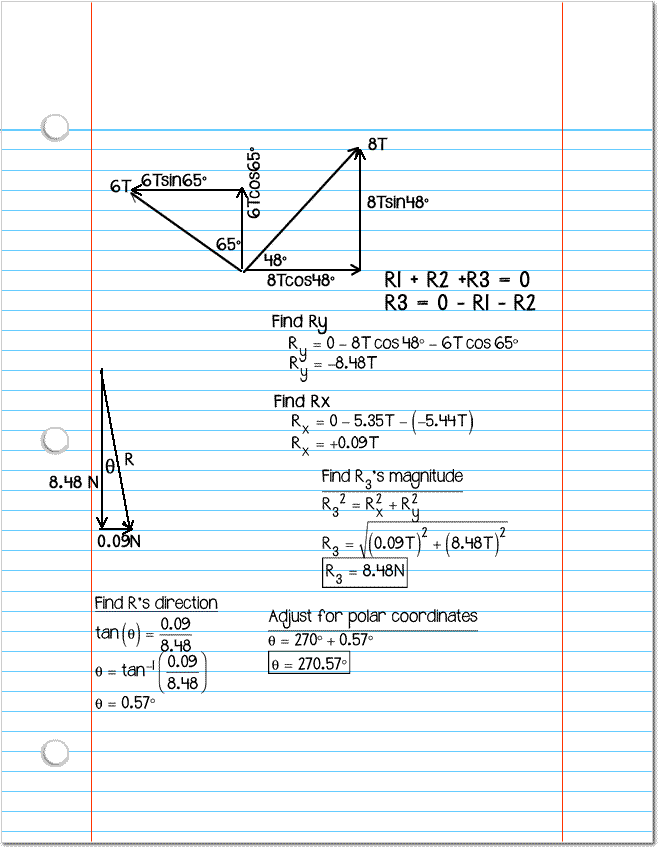 8T
6T
6Tsin65°
6Tcos65°
8Tsin48°
65°
48°
8Tcos48°
R1 + R2 +R3 = 0
R3 = 0 - R1 - R2
Find Ry
R_y = 0 − 8T cos 48° − 6T cos 65°
R_y = −8.48T
Find Rx
R_x = 0 − 5.35T − (−5.44T)
R_x = +0.09T
θ
R
8.48 N
0.09N
Find R_3's magnitude
R_3^2 = R_x^2 + R_y^2
R_3 = √((0.09T)^2 + (8.48T)^2)
R_3 = 8.48N
Find R's direction
tan(θ) = 0.09/8.48
θ = tan^−1(0.09/8.48)
θ = 0.57°
Adjust for polar coordinates
θ = 270° + 0.57°
θ = 270.57°